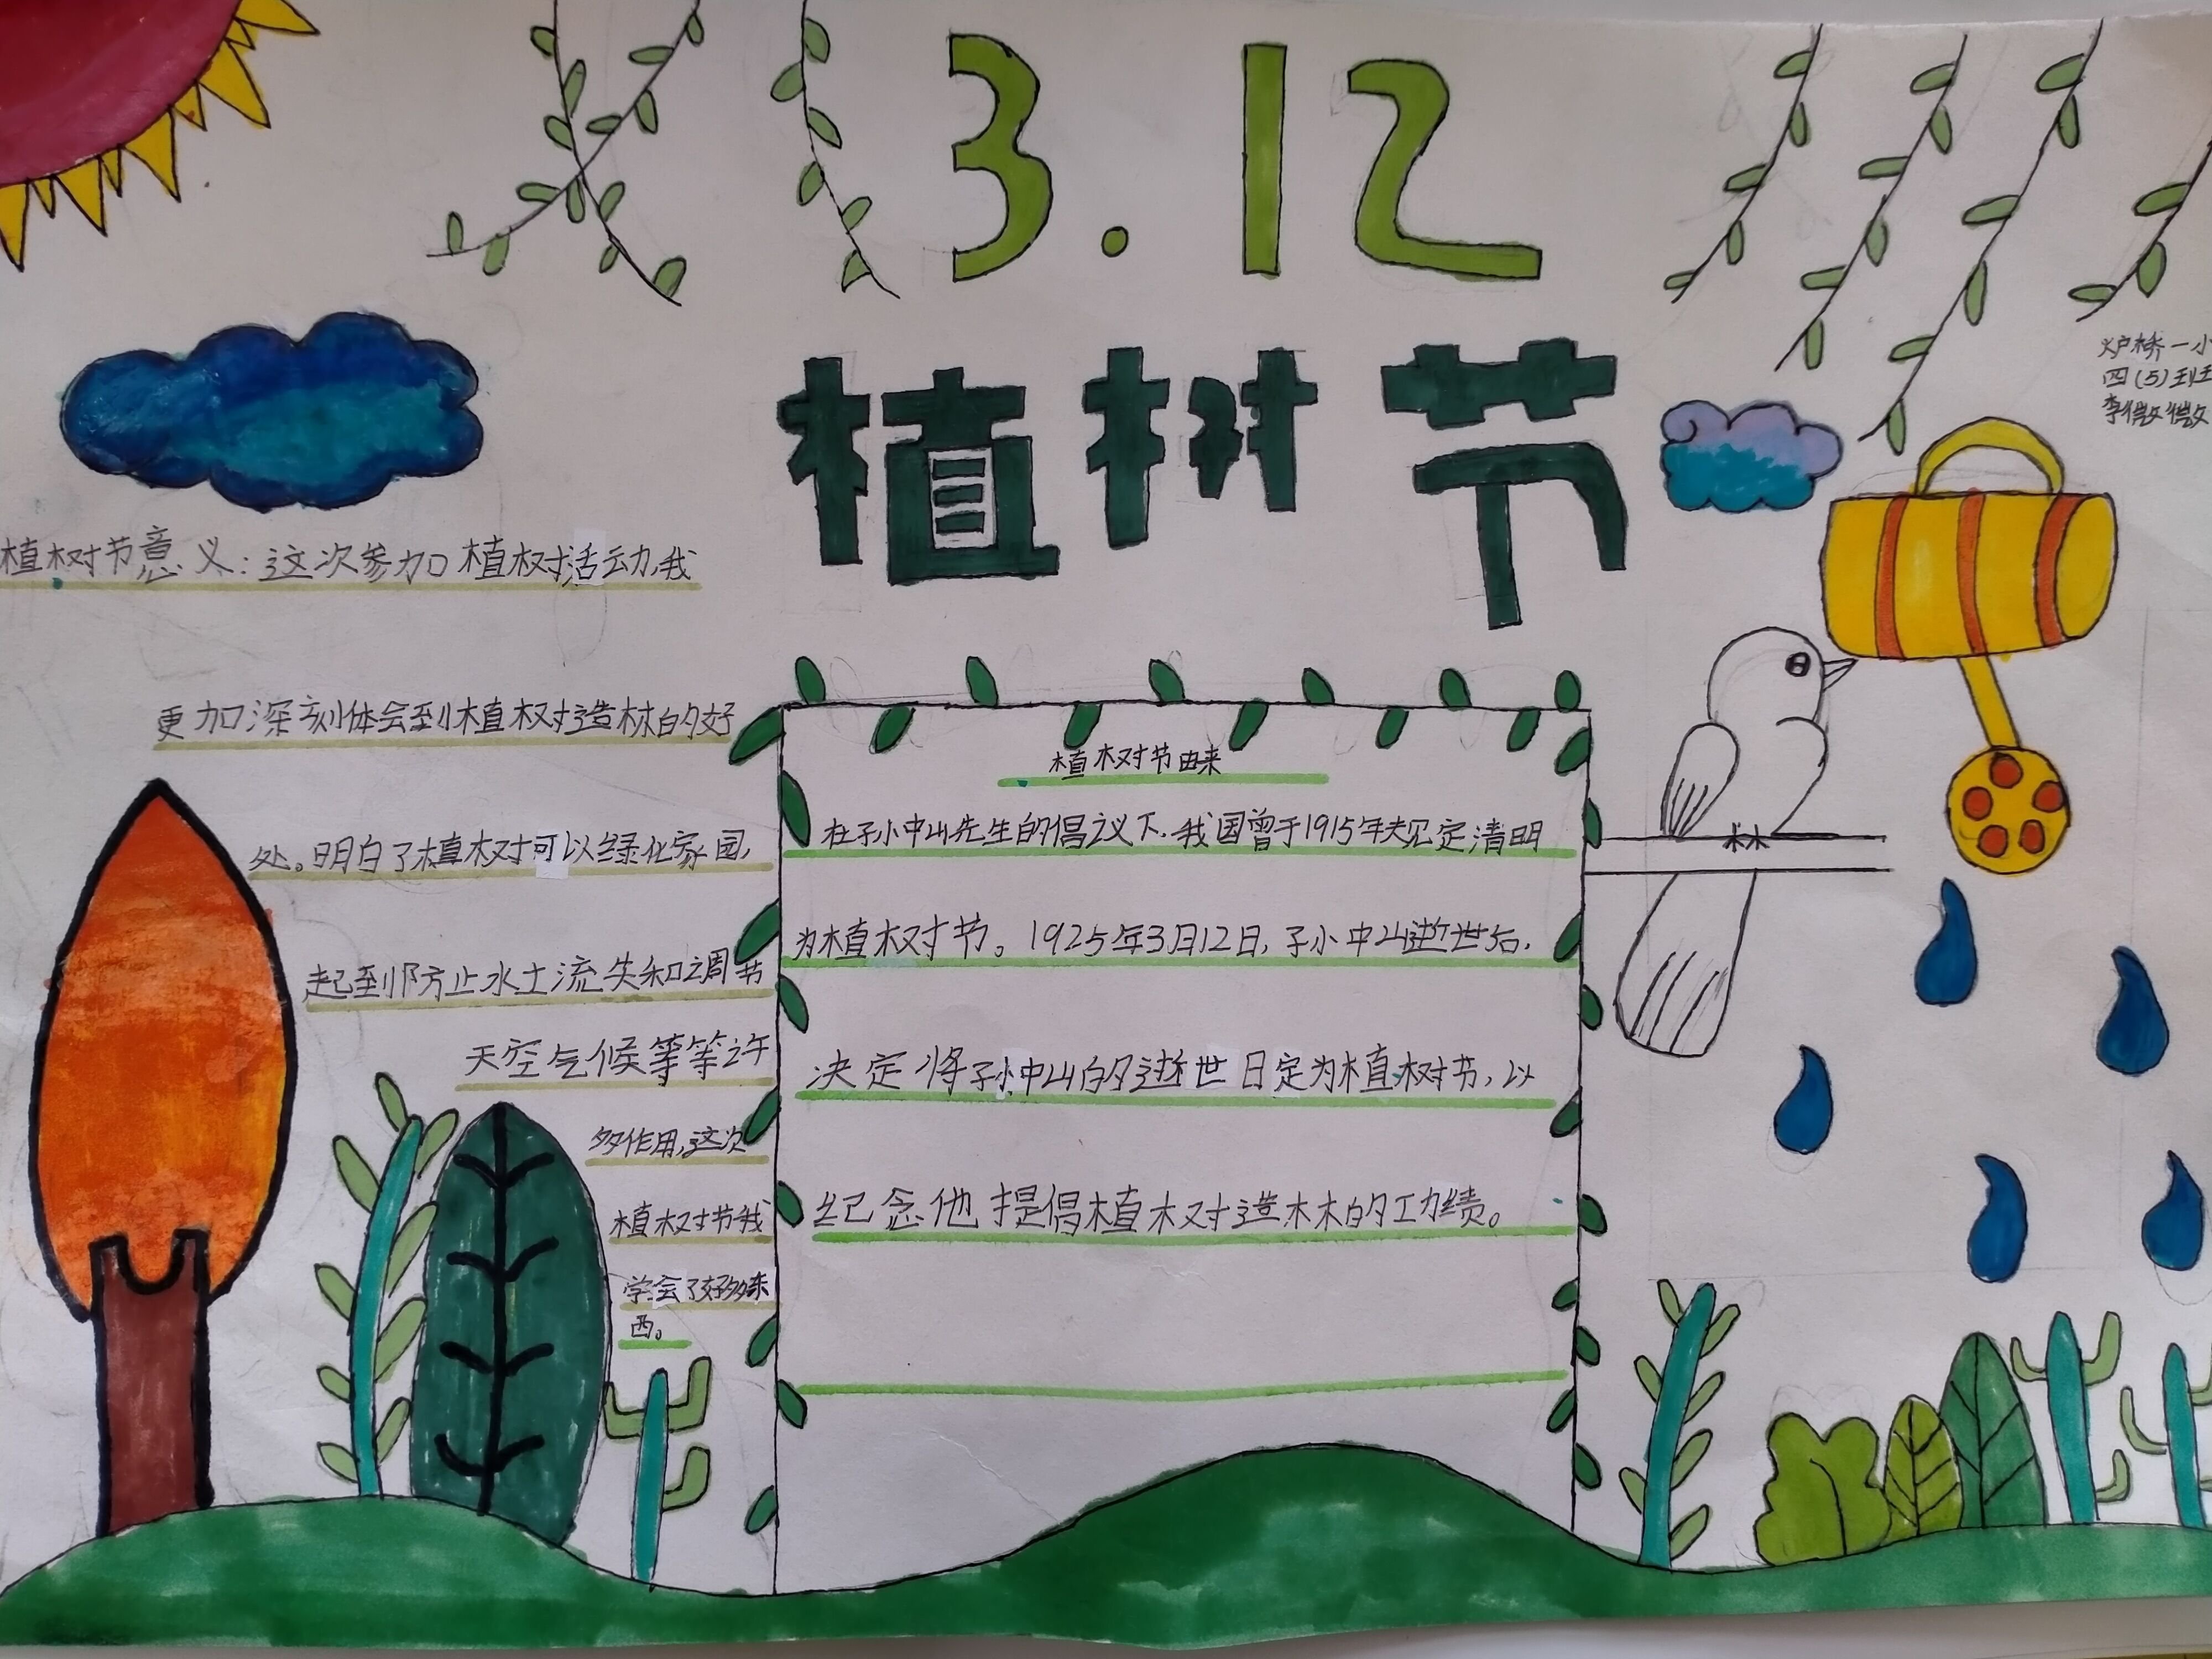 3.12
植树节
炉桥一小
四(5)班
李微微
植树节意义:这次参加植树活动,我
更加深刻体会到植树造林的好
处。明白了植树可以绿化家园,
起到防止水土流失和调节
天空气候等等许
多作用,这次
植树节我
学会了好多东
西。
植树节由来
在孙中山先生的倡议下.我国曾于1915年规定清明
为植树节。1925年3月12日,孙中山逝世后,
决定将孙中山的逝世日定为植树节,以
纪念他提倡植树造林的功绩。